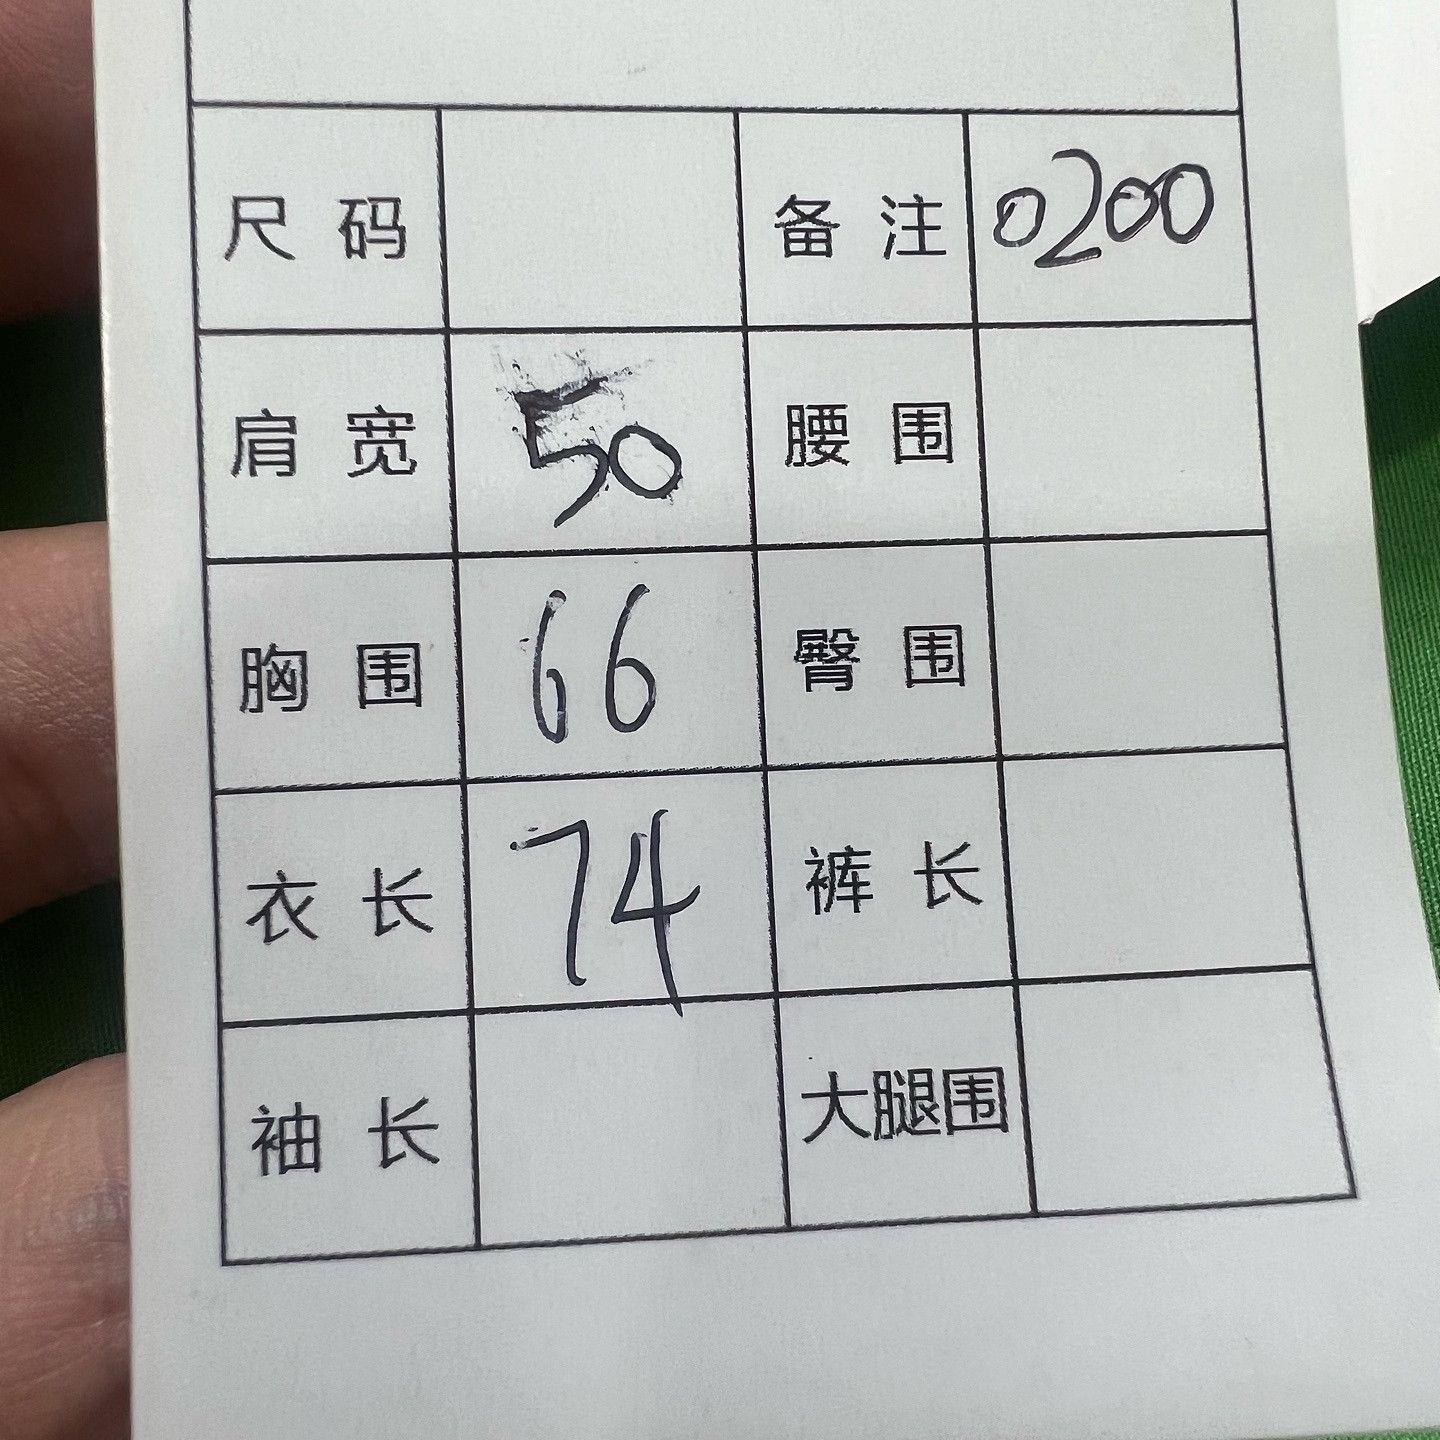 尺码 备注 0200
肩宽 50 腰围
胸围 66 臀围
衣长 74 裤长
袖长 大腿围